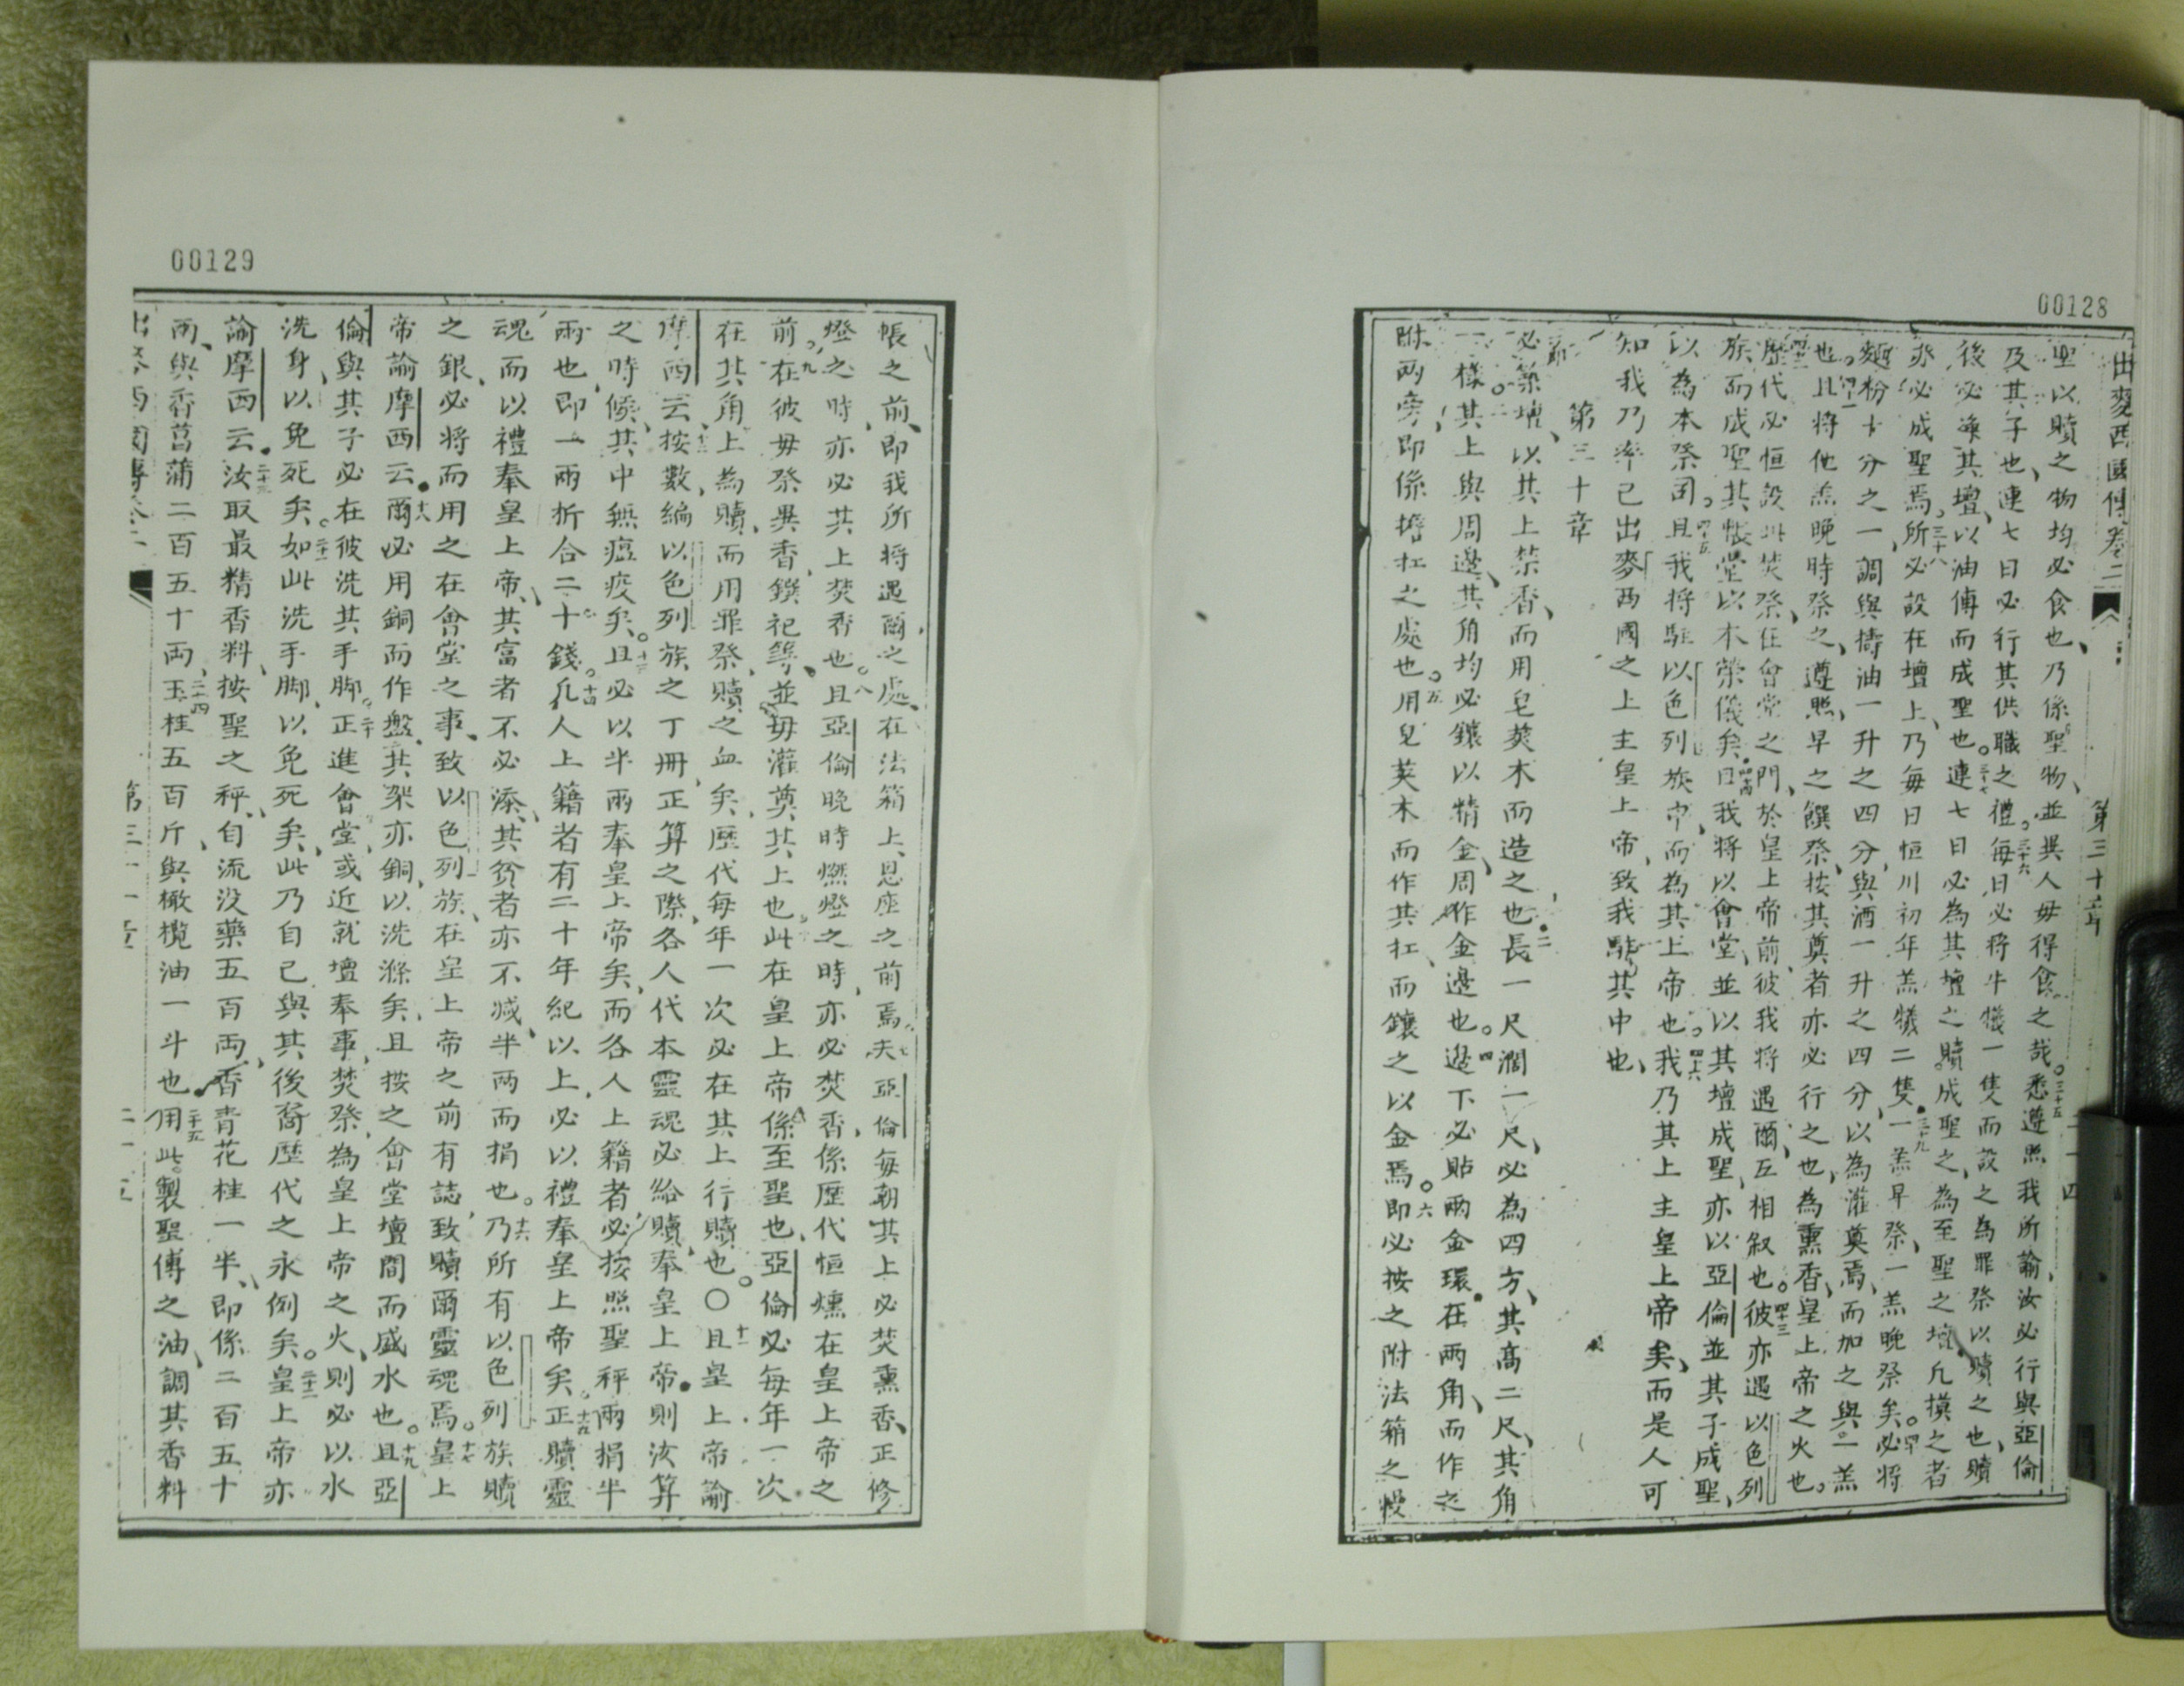 00128
出麥西國傳卷二
聖以贖之物均必食也乃係聖物並異人毋得食之哉三十五悉遵照我所諭汝必行與亞倫
及其子也連七日必行其供職之禮三十六每日必將牛犧一隻而設之為罪祭以贖之也贖
後必潔其壇以油傅而成聖也三十七連七日必為其壇之贖成聖之為至聖之壇凡摸之者
亦必成聖焉三十八所必設在壇上乃每日恒用初年羔犧二隻三十九一羔早祭一羔晚祭矣四十必將
麵粉十分之一調與擣油一升之四分與酒一升之四分以為灌奠焉而加之與一羔
也四十一且將他羔晚時祭之遵照早之饌祭按其奠者亦必行之也為熏香皇上帝之火也
四十二歷代必恒設此焚祭在會堂之門於皇上帝前彼我將遇爾互相叙也四十三彼亦遇以色列
族而成聖其帳堂以本榮儀矣四十四曰我將以會堂並以其壇成聖亦以亞倫並其子成聖
以為本祭司四十五且我將駐以色列族中而為其上帝也四十六我乃其上主皇上帝矣而是人可
知我乃率己出麥西國之上主皇上帝致我駐其中也
第三十章
必築壇以其上禁香而用皂莢木而造之也二長一尺濶一尺必為四方其高二尺其角
一樣三其上與周邊其角均必鑲以精金周作金邊也四邊下必貼兩金環在兩角而作之
附兩旁即係擔扛之處也五用皂莢木而作其扛而鑲之以金焉六即必按之附法箱之幔
00129
帳之前即我所將遇爾之處在法箱上恩座之前焉七夫亞倫每朝其上必焚熏香正修
燈之時亦必其上焚香也八且亞倫晚時燃燈之時亦必焚香係歷代恒燻在皇上帝之
前九在彼毋祭異香鐭祀等並毋灌奠其上也此在皇上帝係至聖也亞倫必每年一次
在其角上為贖而用罪祭贖之血矣歷代每年一次必在其上行贖也〇十一且皇上帝諭
摩西云十二按數編以色列族之丁冊正算之際各人代本靈魂必給贖奉皇上帝則汝算
之時候其中無瘟疫矣十三且必以半兩奉皇上帝矣而各人上籍者必按照聖秤兩捐半
兩也即一兩折合二十錢十四凡人上籍者有二十年紀以上必以禮奉皇上帝矣十五正贖靈
魂而以禮奉皇上帝其富者不必添其貧者亦不減半兩而捐也十六乃所有以色列族贖
之銀必將而用之在會堂之事致以色列族在皇上帝之前有誌致贖爾靈魂焉十七皇上
帝諭摩西云十八爾必用銅而作盤其架亦銅以洗滌矣且按之會堂壇間而盛水也十九且亞
倫與其子必在彼洗其手脚二十正進會堂或近就壇奉事焚祭為皇上帝之火則必以水
洗身以免死矣二十一如此洗手脚以免死矣此乃自己與其後裔歷代之永例矣二十二皇上帝亦
諭摩西云二十三汝取最精香料按聖之秤自流没藥五百兩香青花桂一半即係二百五十
兩與香菖蒲二百五十両二十四玉桂五百斤與橄欖油一斗也二十五用此製聖傅之油調其香料